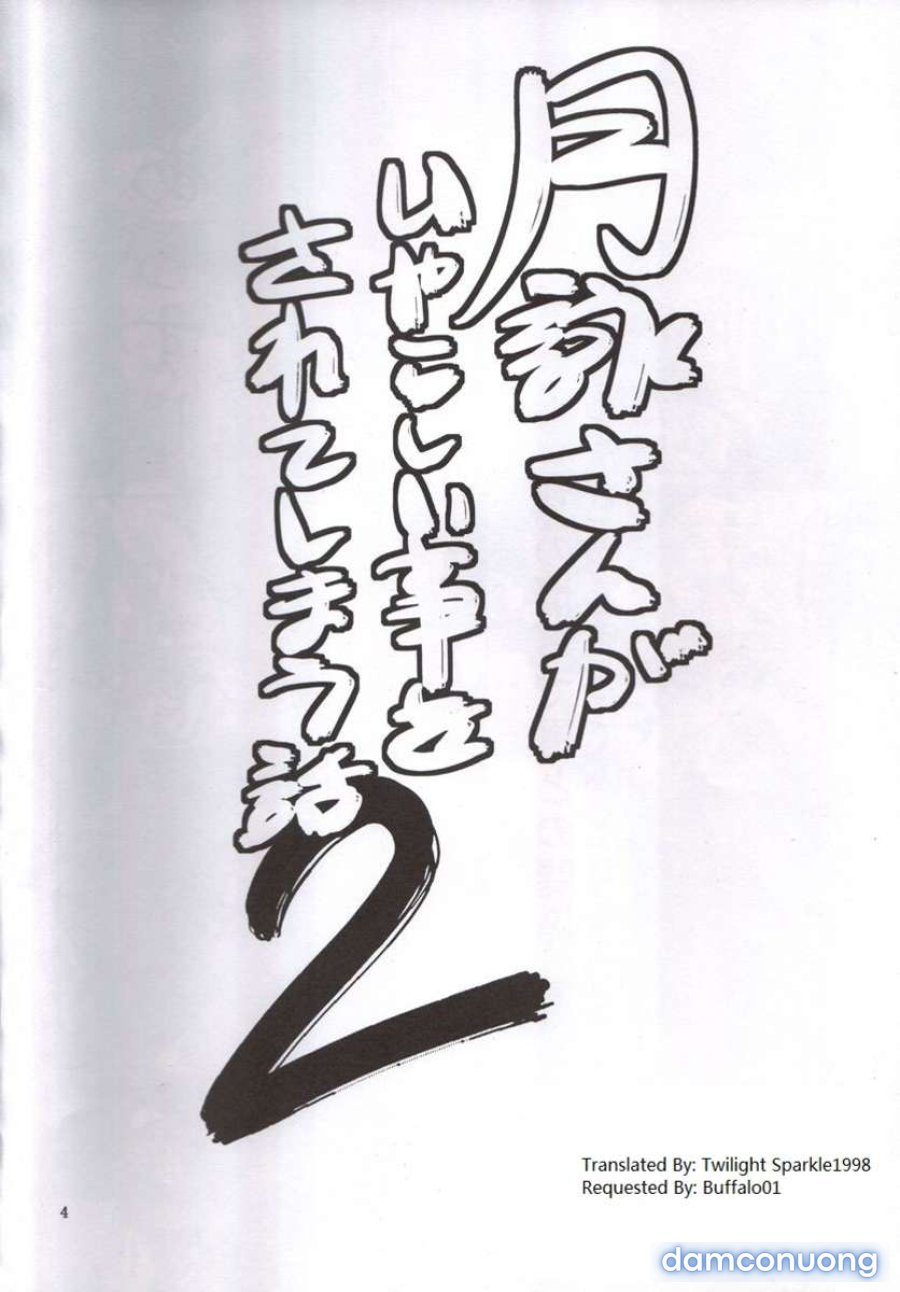 月詠さんが
いやらしい事を
されてしまう話
2
Translated By: Twilight Sparkle1998
Requested By: Buffalo01
4
damconuong